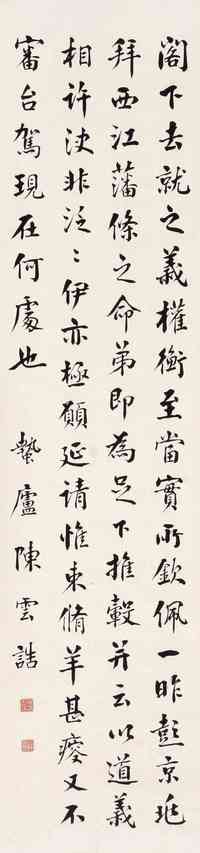 閣下去就之義權衡至當實所欽佩一昨彭京兆
拜西江藩條之命弟即為足下推轂并云以道義
相許決非泛泛伊亦極願延請惟束脩羊甚瘦又不
審台駕現在何處也
蟄廬陳雲誥